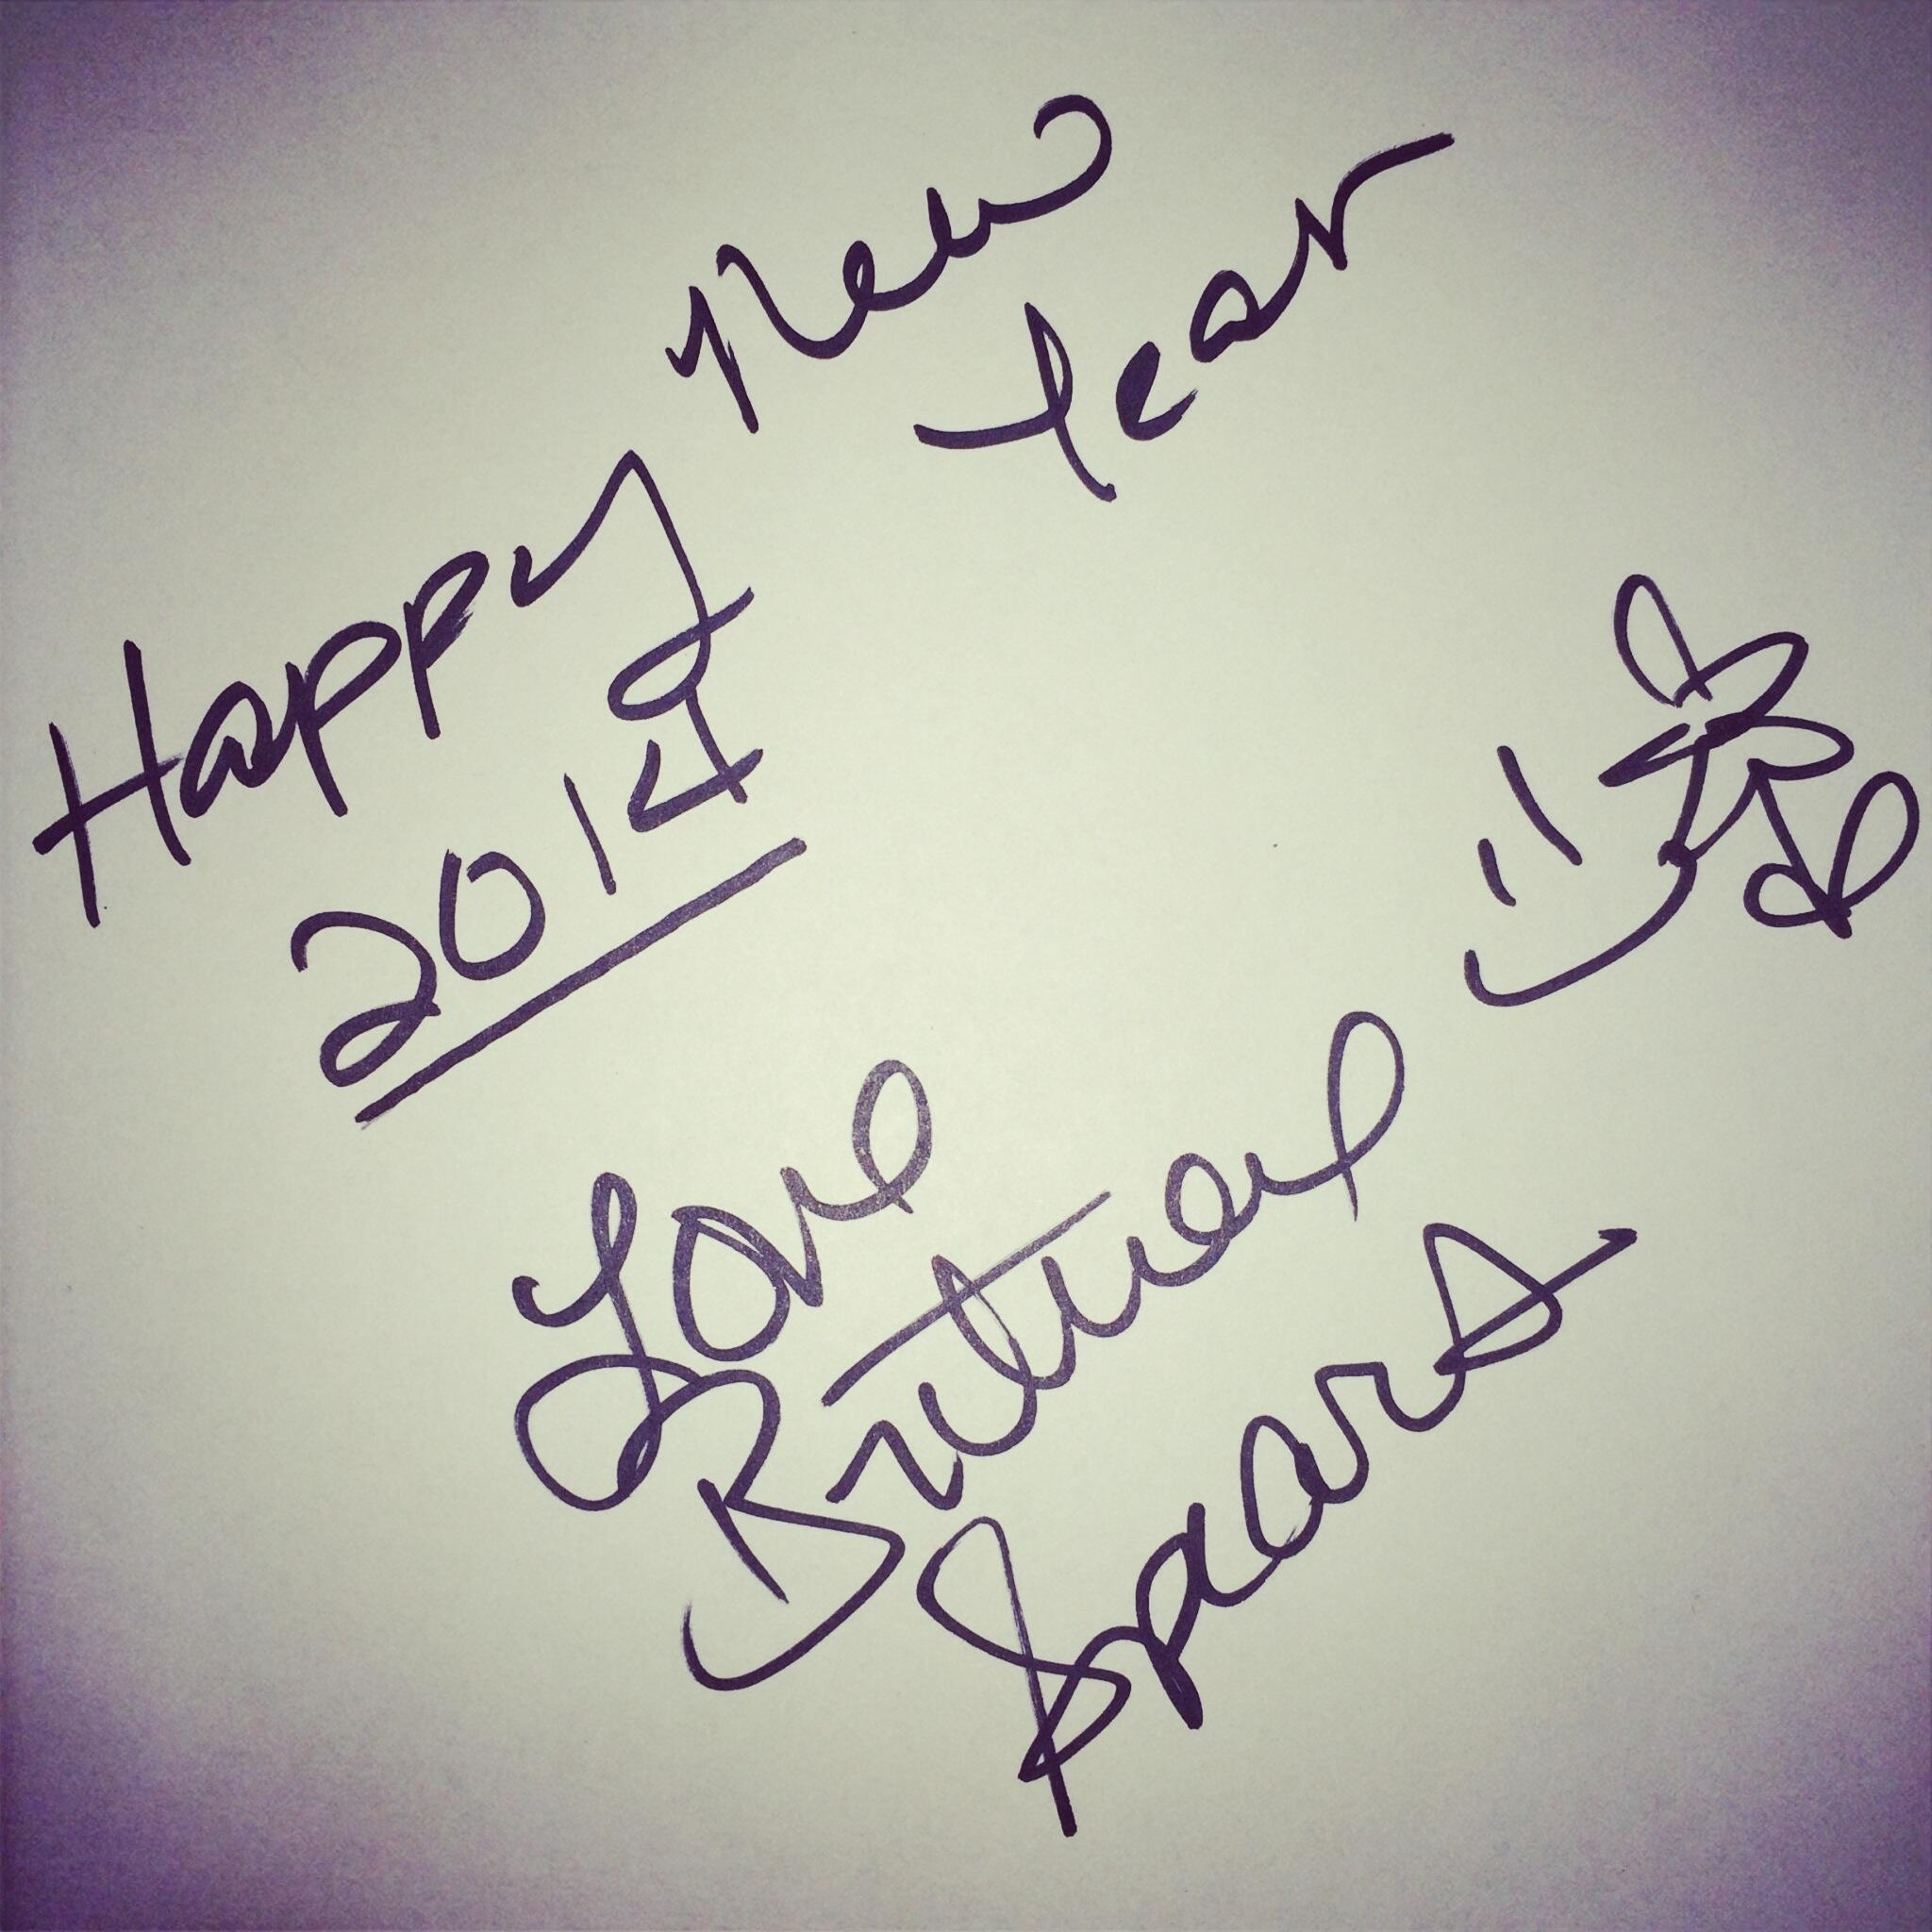 Happy New
Year
2014
Love
Britney
Spears